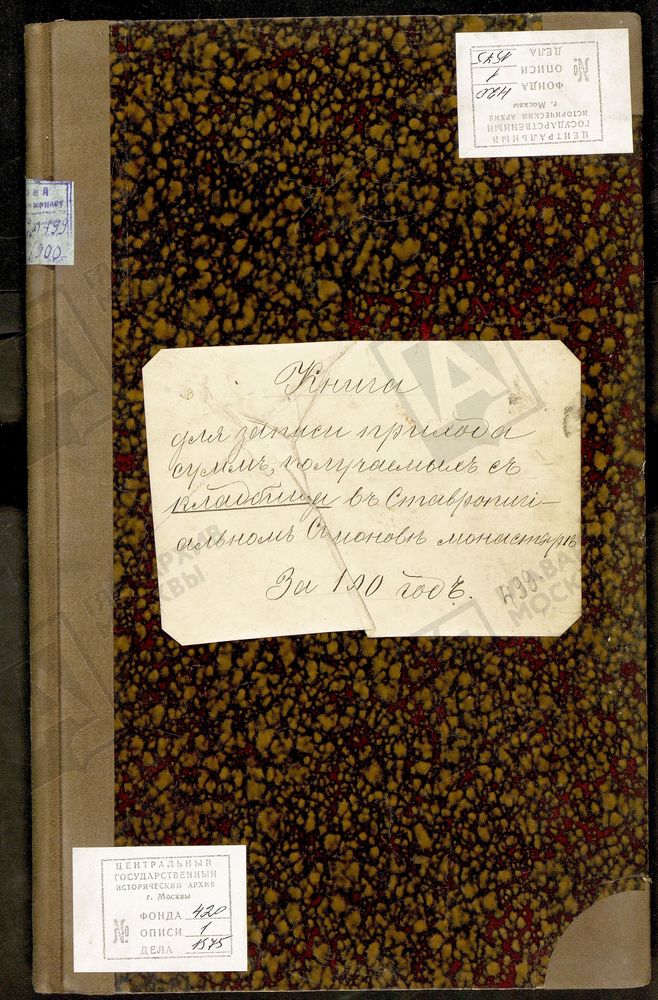 ЦЕНТРАЛЬНЫЙ
ГОСУДАРСТВЕННЫЙ
ИСТОРИЧЕСКИЙ АРХИВ
г. Москвы
№ ФОНДА 420
ОПИСИ 1
ДЕЛА 1575
Книга
для записи прихода
суммъ, получаемыхъ съ
кладбища въ Ставропигі-
альномъ Симоновѣ монастырѣ
За 190 годъ.
499
ЦЕНТРАЛЬНЫЙ
ГОСУДАРСТВЕННЫЙ
ИСТОРИЧЕСКИЙ АРХИВ
г. Москвы
№ ФОНДА 420
ОПИСИ 1
ДЕЛА 1575